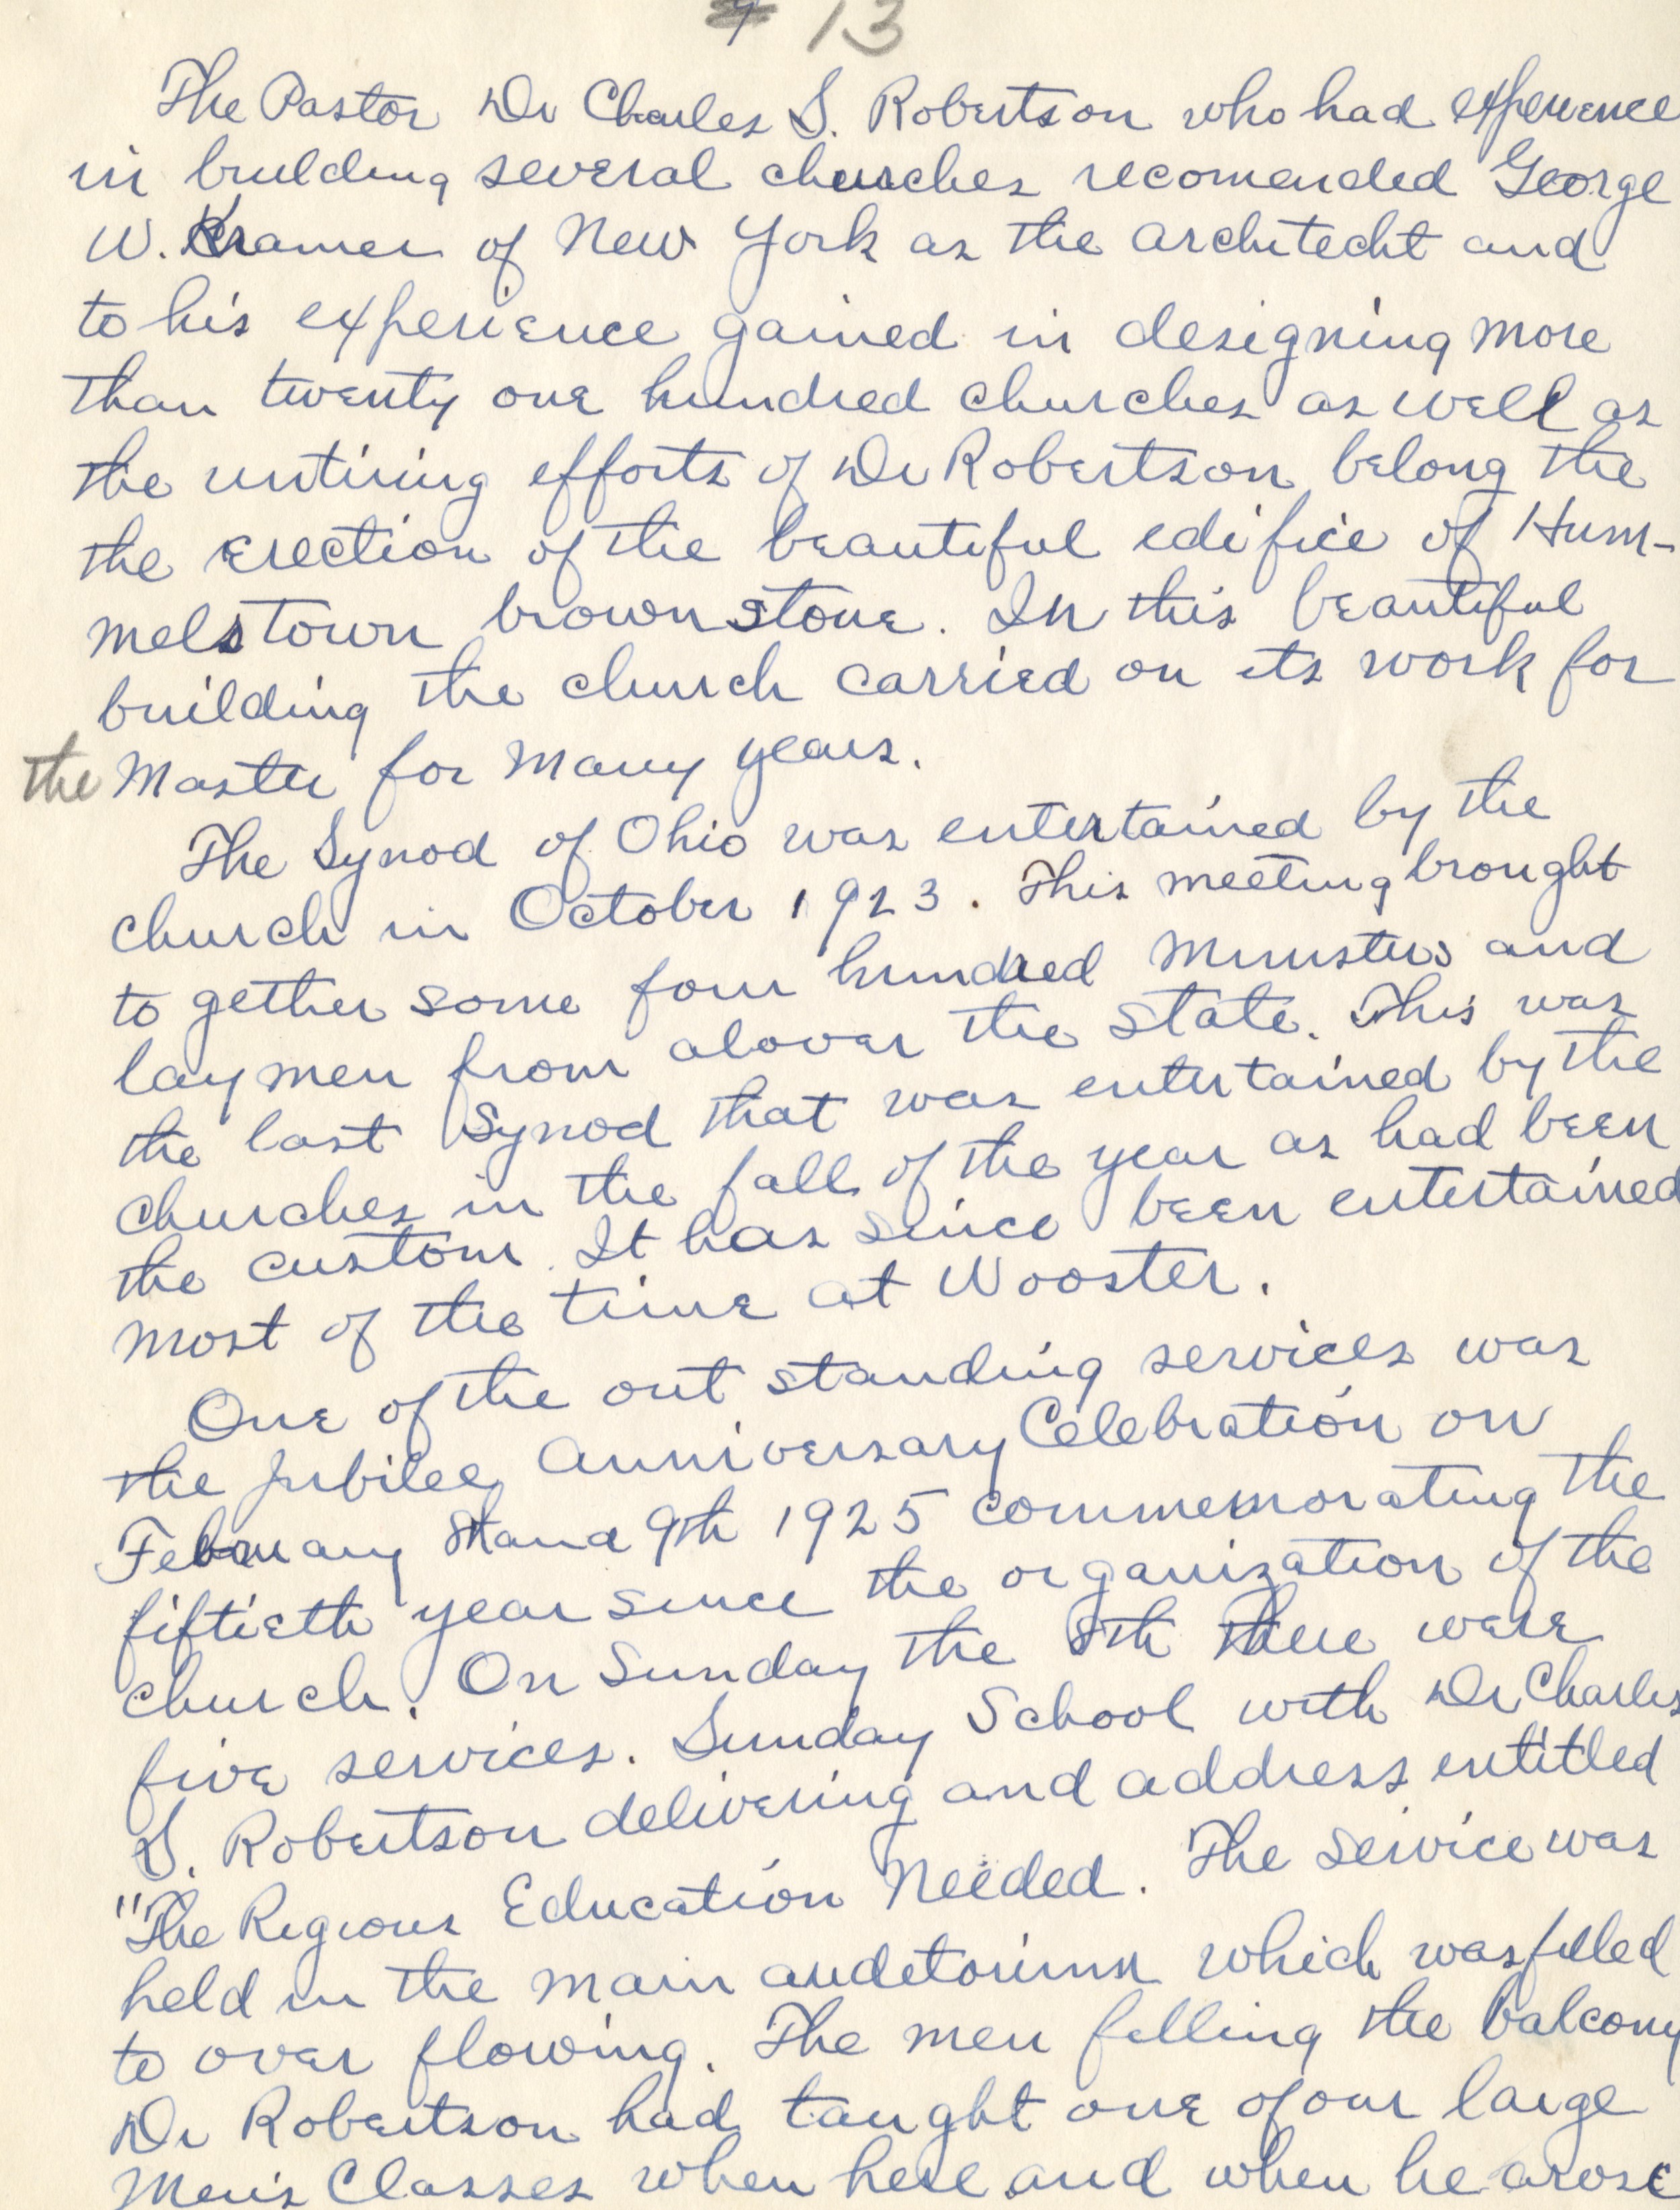 13
The Pastor Dr Charles S. Robertson who had experience
in building several churches recomended George
W. Kramer of New York as the architecht and
to his experience gained in designing more
than twenty one hundred churches as well as
the untiring efforts of Dr Robertson belong the
the erection of the beautiful edifice of Hum-
melstown brownstone. In this beautiful
building the church carried on its work for
the Master for many years.
The Synod of Ohio was entertained by the
church in October 1923. This meeting brought
to gether some four hundred Ministers and
laymen from alover the state. This was
the last Synod that was entertained by the
churches in the fall of the year as had been
the custom. It has since been entertained
most of the time at Wooster.
One of the out standing services was
the Jubilee Anniversary Celebration on
February 8th and 9th 1925 commemorating the
fiftieth year since the organization of the
church. On Sunday the 8th there were
five services. Sunday School with Dr Charles
S. Robertson delivering and address entitled
"The Regious Education Needed. The service was
held in the main audetorium which was filled
to over flowing. The men filling the balcony
Dr Robertson had taught one of our large
Men's Classes when here and when he arose